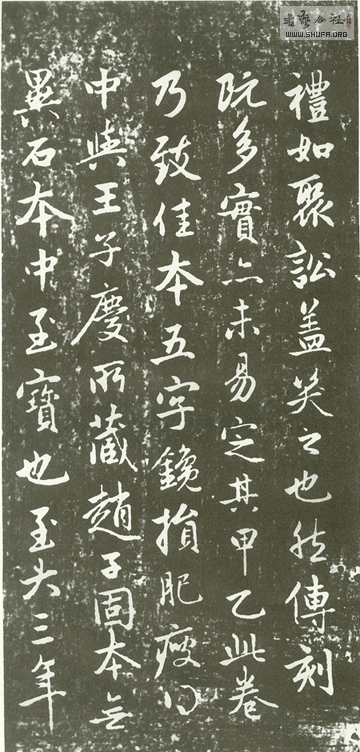 書藝公社
WWW.SHUFA.ORG
禮如聚訟盖笑之也然傳刻
既多實亦未易定其甲乙此卷
乃致佳本五字鑱損肥瘦得
中與王子慶所藏趙子固本無
異石本中至寶也至大三年